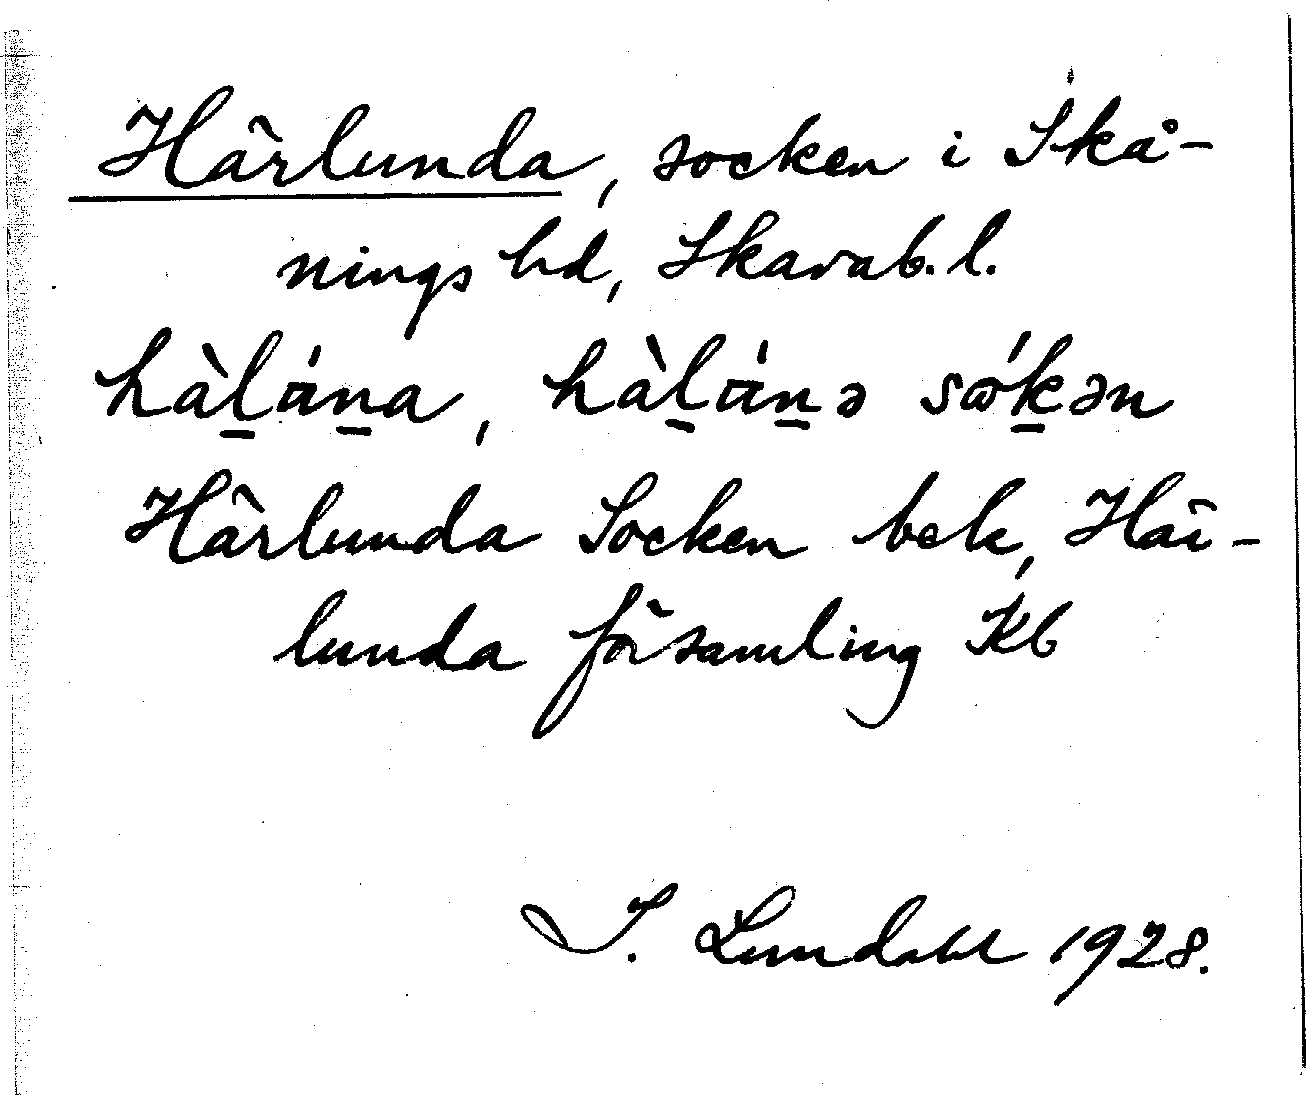 Härlunda, socken i Skå-
nings hd, Skarab. l.
hàḻáṉa, hàḻáṉə sǿḵən
Härlunda Socken bek, Här-
lunda församling Kb
I. Lundahl 1928.